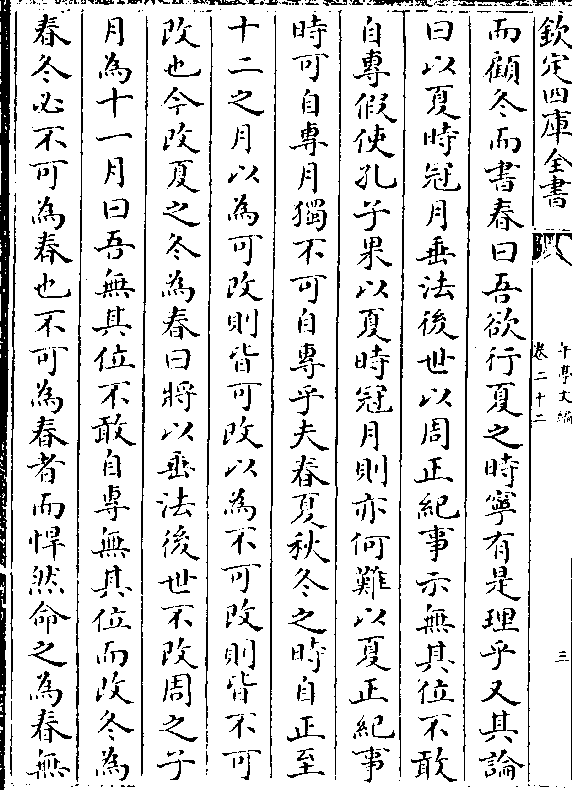 欽定四庫全書
午亭文編
卷二十二
三
而顧冬而書春曰吾欲行夏之時寧有是理乎又其論
曰以夏時冠月垂法後世以周正紀事示無其位不敢
自專假使孔子果以夏時冠月則亦何難以夏正紀事
時可自專月獨不可自專乎夫春夏秋冬之時自正至
十二之月以為可改則皆可改以為不可改則皆不可
改也今改夏之冬為春曰將以垂法後世不改周之子
月為十一月曰吾無其位不敢自專無其位而改冬為
春冬必不可為春也不可為春者而悍然命之為春無